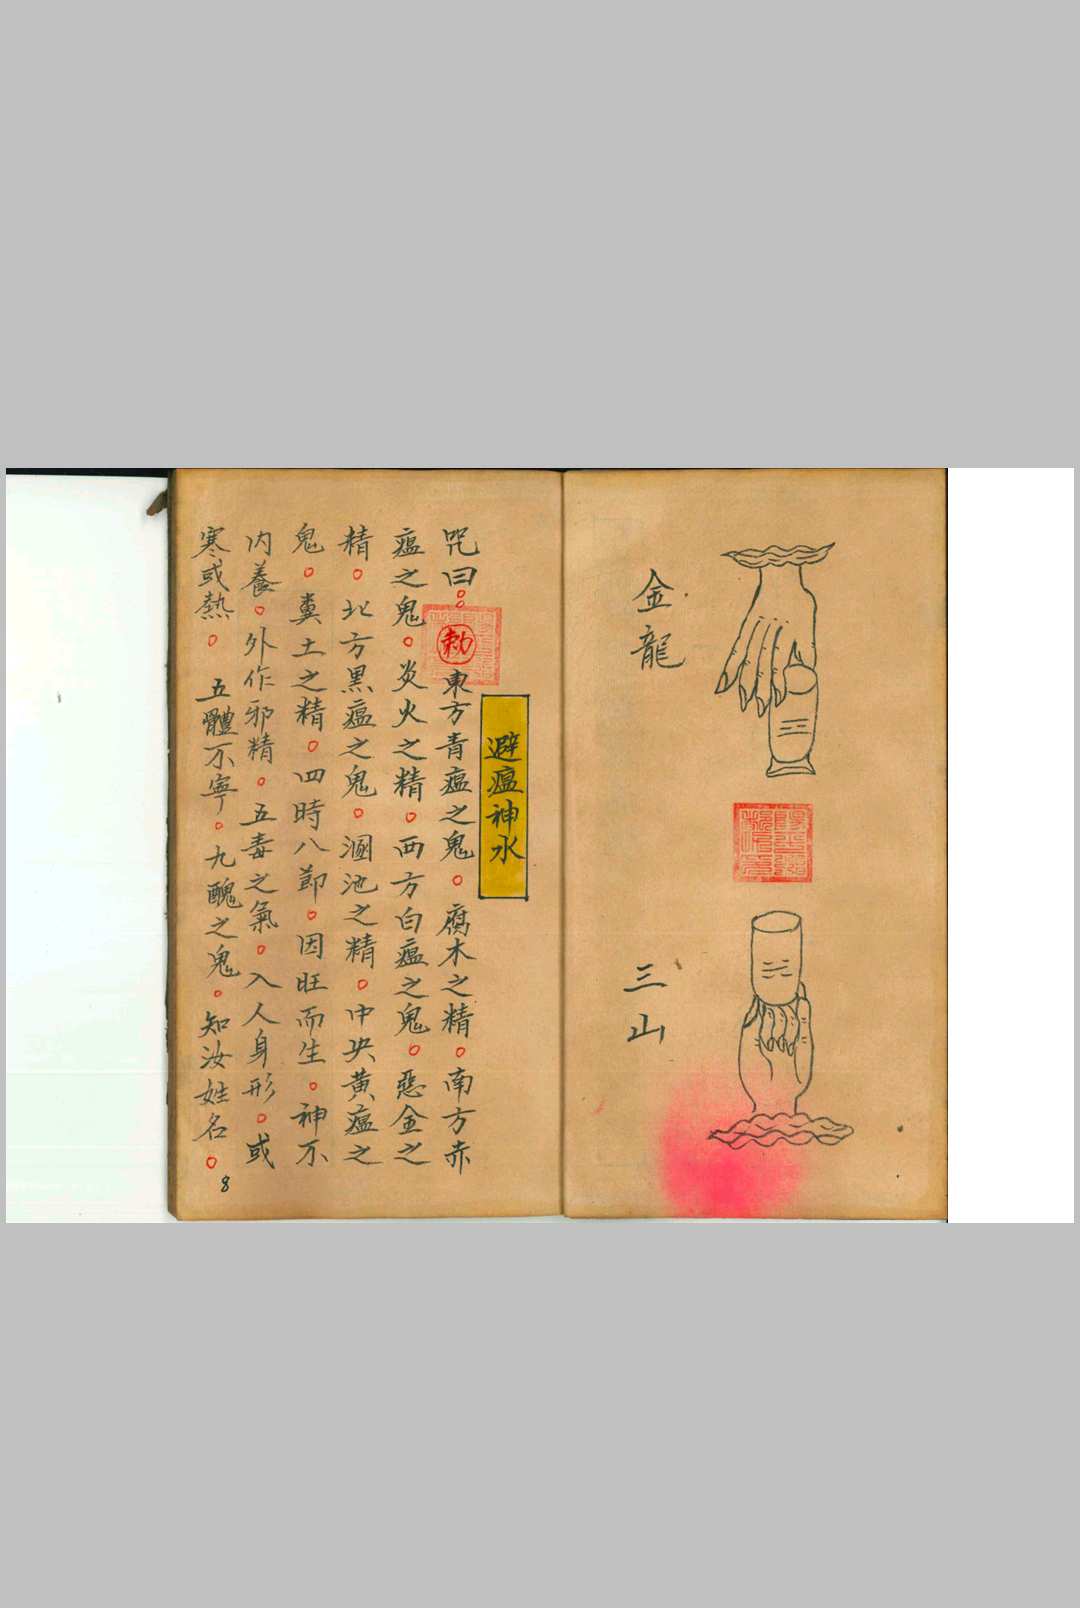 金龍
三山
避瘟神水
咒曰。。勅東方青瘟之鬼。腐木之精。南方赤
瘟之鬼。炎火之精。西方白瘟之鬼。惡金之
精。北方黑瘟之鬼。溷池之精。中央黃瘟之
鬼。糞土之精。四時八節。因旺而生。神不
內養。外作邪精。五毒之氣。入人身形。或
寒或熱。五體不寧。九醜之鬼。知汝姓名。
8